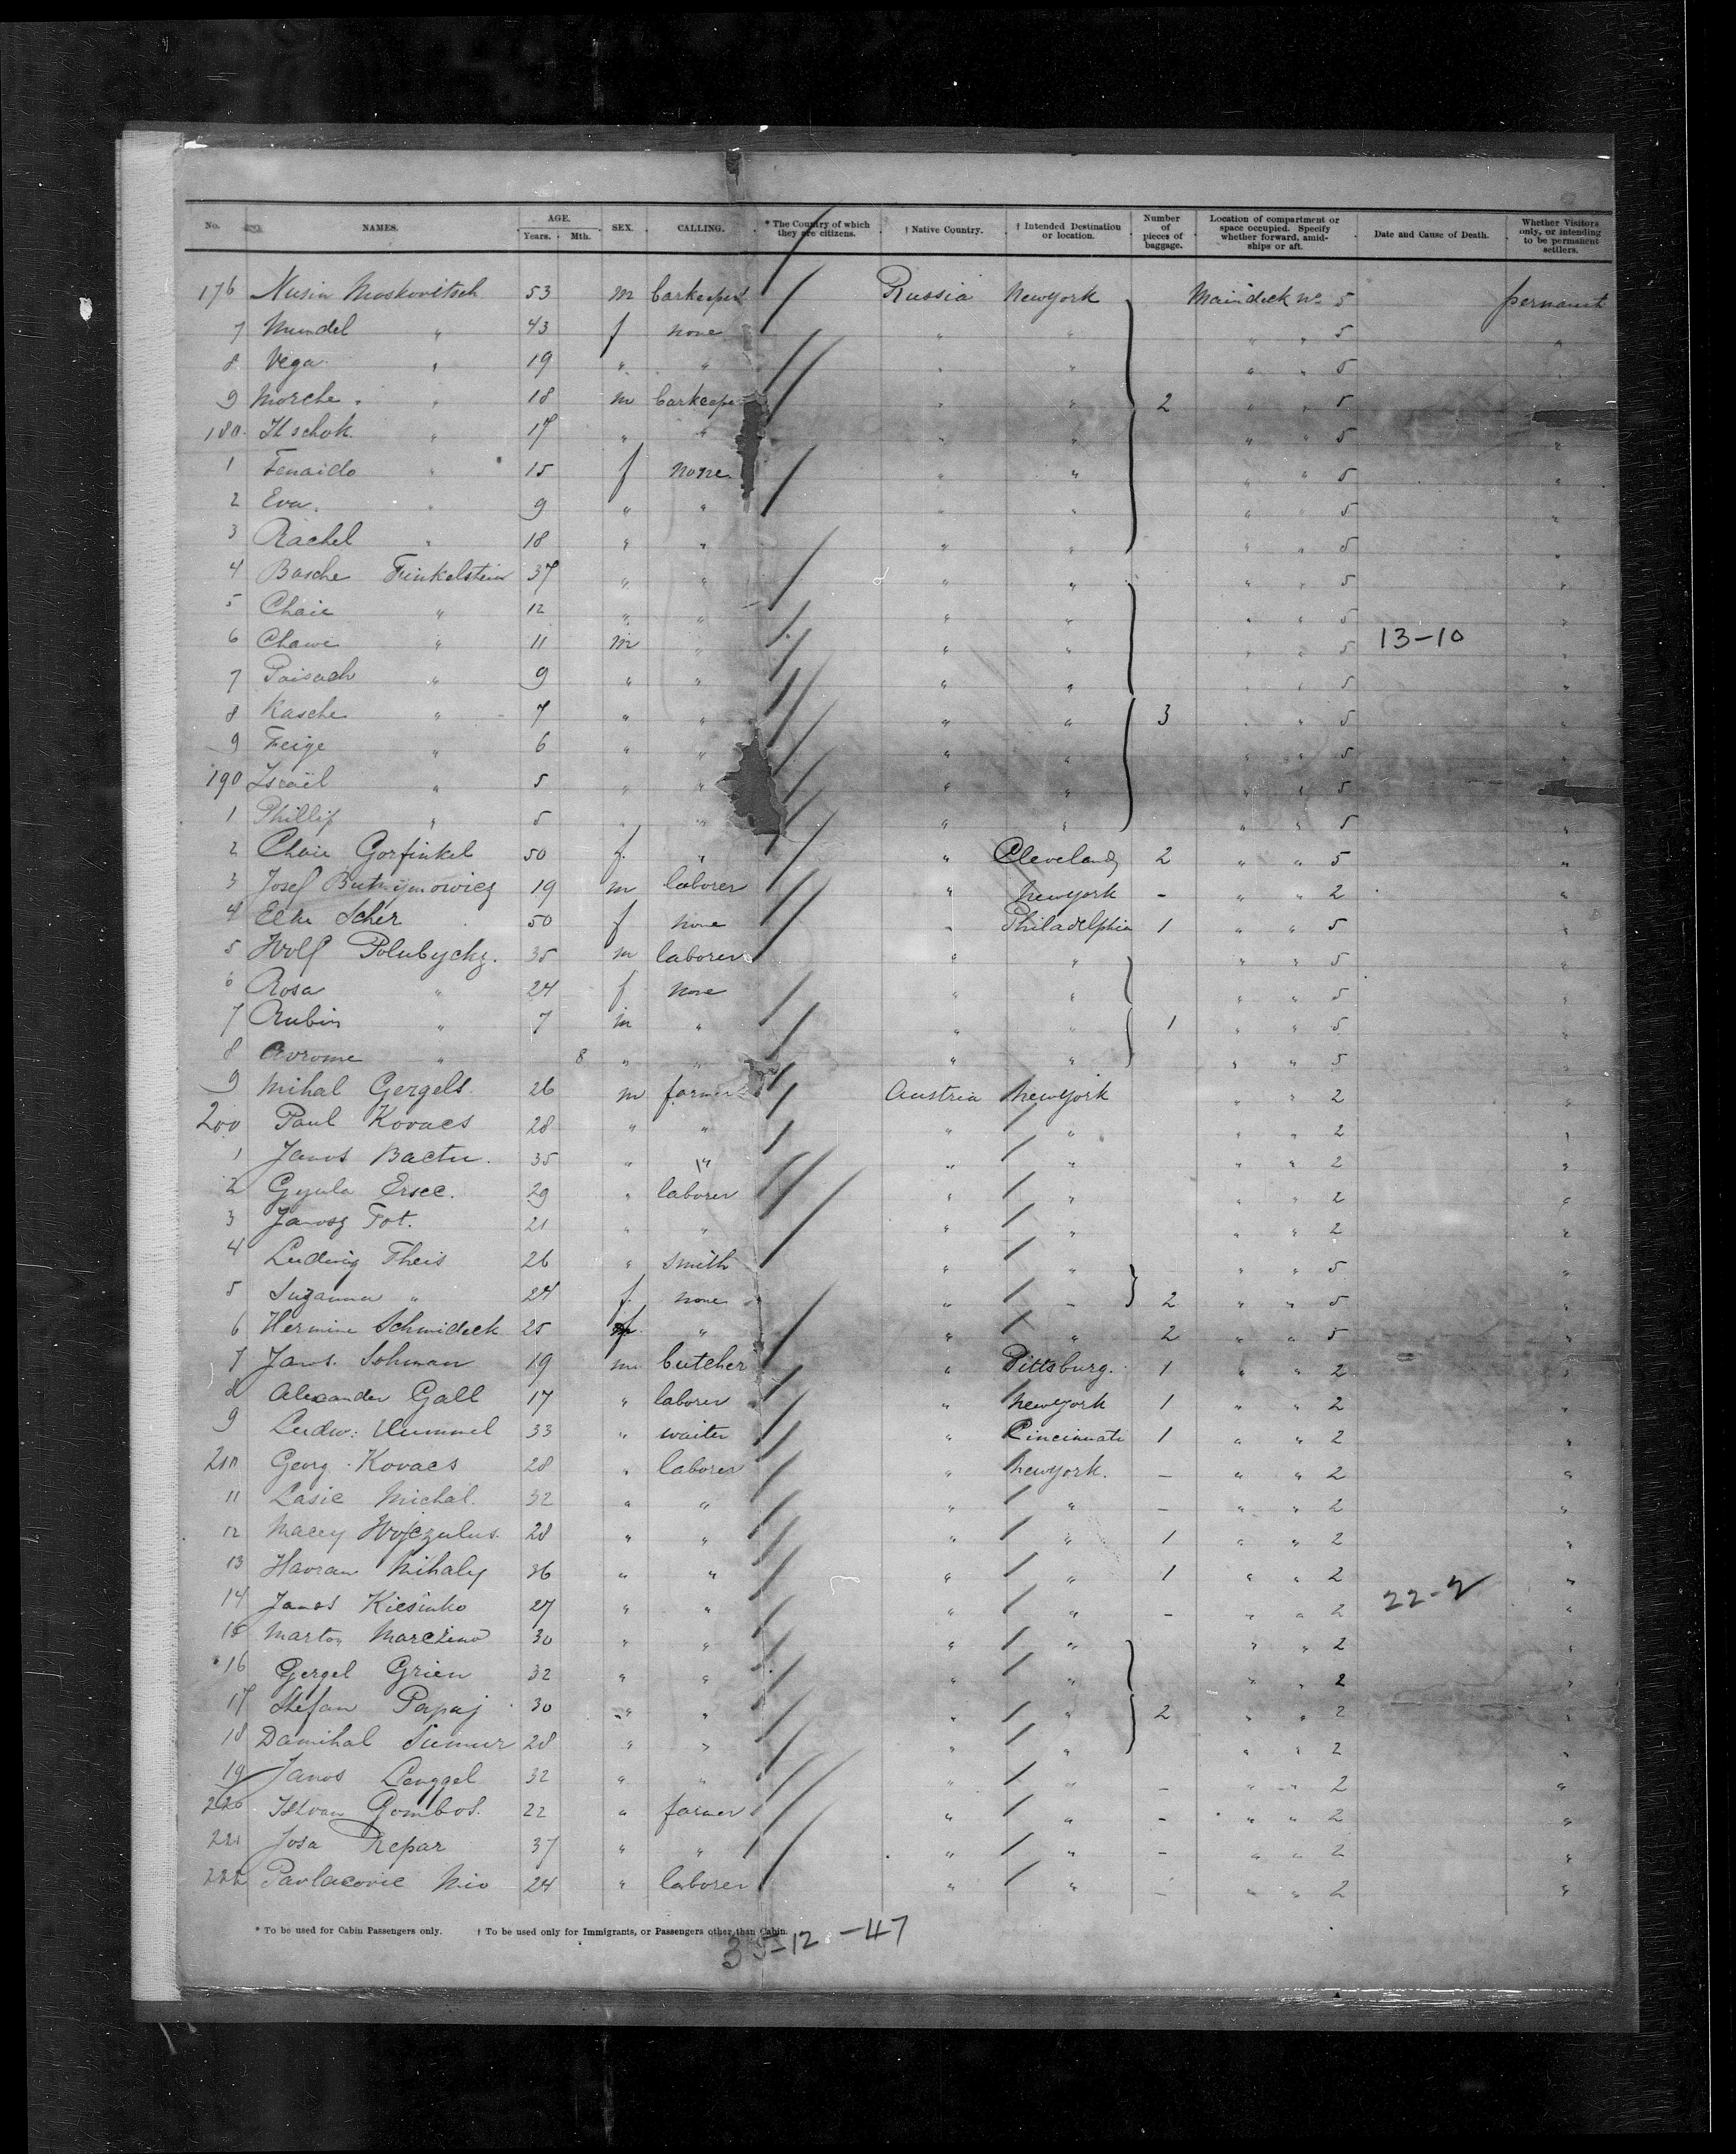 No. NAMES. AGE. Years. Mth. SEX. CALLING. * The Country of which they are citizens. † Native Country. † Intended Destination or location. Number of pieces of baggage. Location of compartment or space occupied. Specify whether forward, amidships or aft. Date and Cause of Death. Whether Visitors only, or intending to be permanent settlers.
176 Nusin Moskovitsch 53 m barkeeper Russia Newyork Maindeck No 5 permanent
7 Mundel " 43 f none " " " " 5 "
8 Vega " 19 " " " " " " 5 "
9 Morche " 18 m barkeeper " " 2 " " 5 "
180 Itschok " 17 " " " " " " 5 "
1 Fenaido " 15 f none " " " " 5 "
2 Eva " 9 " " " " " " 5 "
3 Rachel " 18 " " " " " " 5 "
4 Basche Finkelstein 37 " " " " " " 5 "
5 Chaie " 12 " " " " " " 5 "
6 Chawe " 11 m " " " " " 5 13-10 "
7 Paisach " 9 " " " " " " 5 "
8 Kasche " 7 " " " " 3 " " 5 "
9 Feige " 6 " " " " " " 5 "
190 Israël " 5 " " " " " " 5 "
1 Phillip " 5 " " " " " " 5 "
2 Chaie Gorfinkel 50 f " " Cleveland 2 " " 5 "
3 Josef 19 m laborer " Newyork - " " 2 "
4 Elke Scher 50 f none " Philadelphia 1 " " 5 "
5 Wolf Polubychz. 35 m laborer " " " " 5 "
6 Rosa " 24 f none " " " " 5 "
7 Rubin " 7 m " " " 1 " " 5 "
8 Avrome " 8 " " " " " " 5 "
9 Mihal Gergels 26 m farmer Austria Newyork " " 2 "
200 Paul Kovacs 28 " " " " " " 2 "
1 Janos Bactu. 35 " " " " " " 2 "
2 Gyula Ersec. 29 " laborer " " " " 2 "
3 Janosz Tot. 21 " " " " " " 2 "
4 Ludwig Theis 26 " smith " " " " 5 "
5 Suzanna " 24 f. none " " 2 " " 5 "
6 Hermine Schmideck 25 f. " " " 2 " " 5 "
7 Janos. Sohman 19 m butcher " Pittsburg. 1 " " 2 "
8 Alexander Gall 17 " laborer " Newyork 1 " " 2 "
9 Ludw: Hummel 33 " waiter " Cincinnati 1 " " 2 "
210 Georg Kovacs 28 " laborer " Newyork. - " " 2 "
11 Lasic Michal. 32 " " " " - " " 2 "
12 Macey 28 " " " " 1 " " 2 "
13 Havran Mihaly 36 " " " " 1 " " 2 "
14 Janos Kicsinko 27 " " " " - " " 2 22-2 "
15 Marton Marcsino 30 " " " " " " 2 "
16 Gergel Grien 32 " " " " " " 2 "
17 Stefan Papaj 30 " " " " 2 " " 2 "
18 Damihal 28 " " " " " " 2 "
19 Janos Lenggel 32 " " " " - " " 2 "
220 Istvan Gombos. 22 " farmer " " - " " 2 "
221 Josa Repar 37 " " " " - " " 2 "
222 Pavlacovic Mio 24 " laborer " " - " " 2 "
* To be used for Cabin Passengers only. † To be used only for Immigrants, or Passengers other than Cabin.
35-12-47